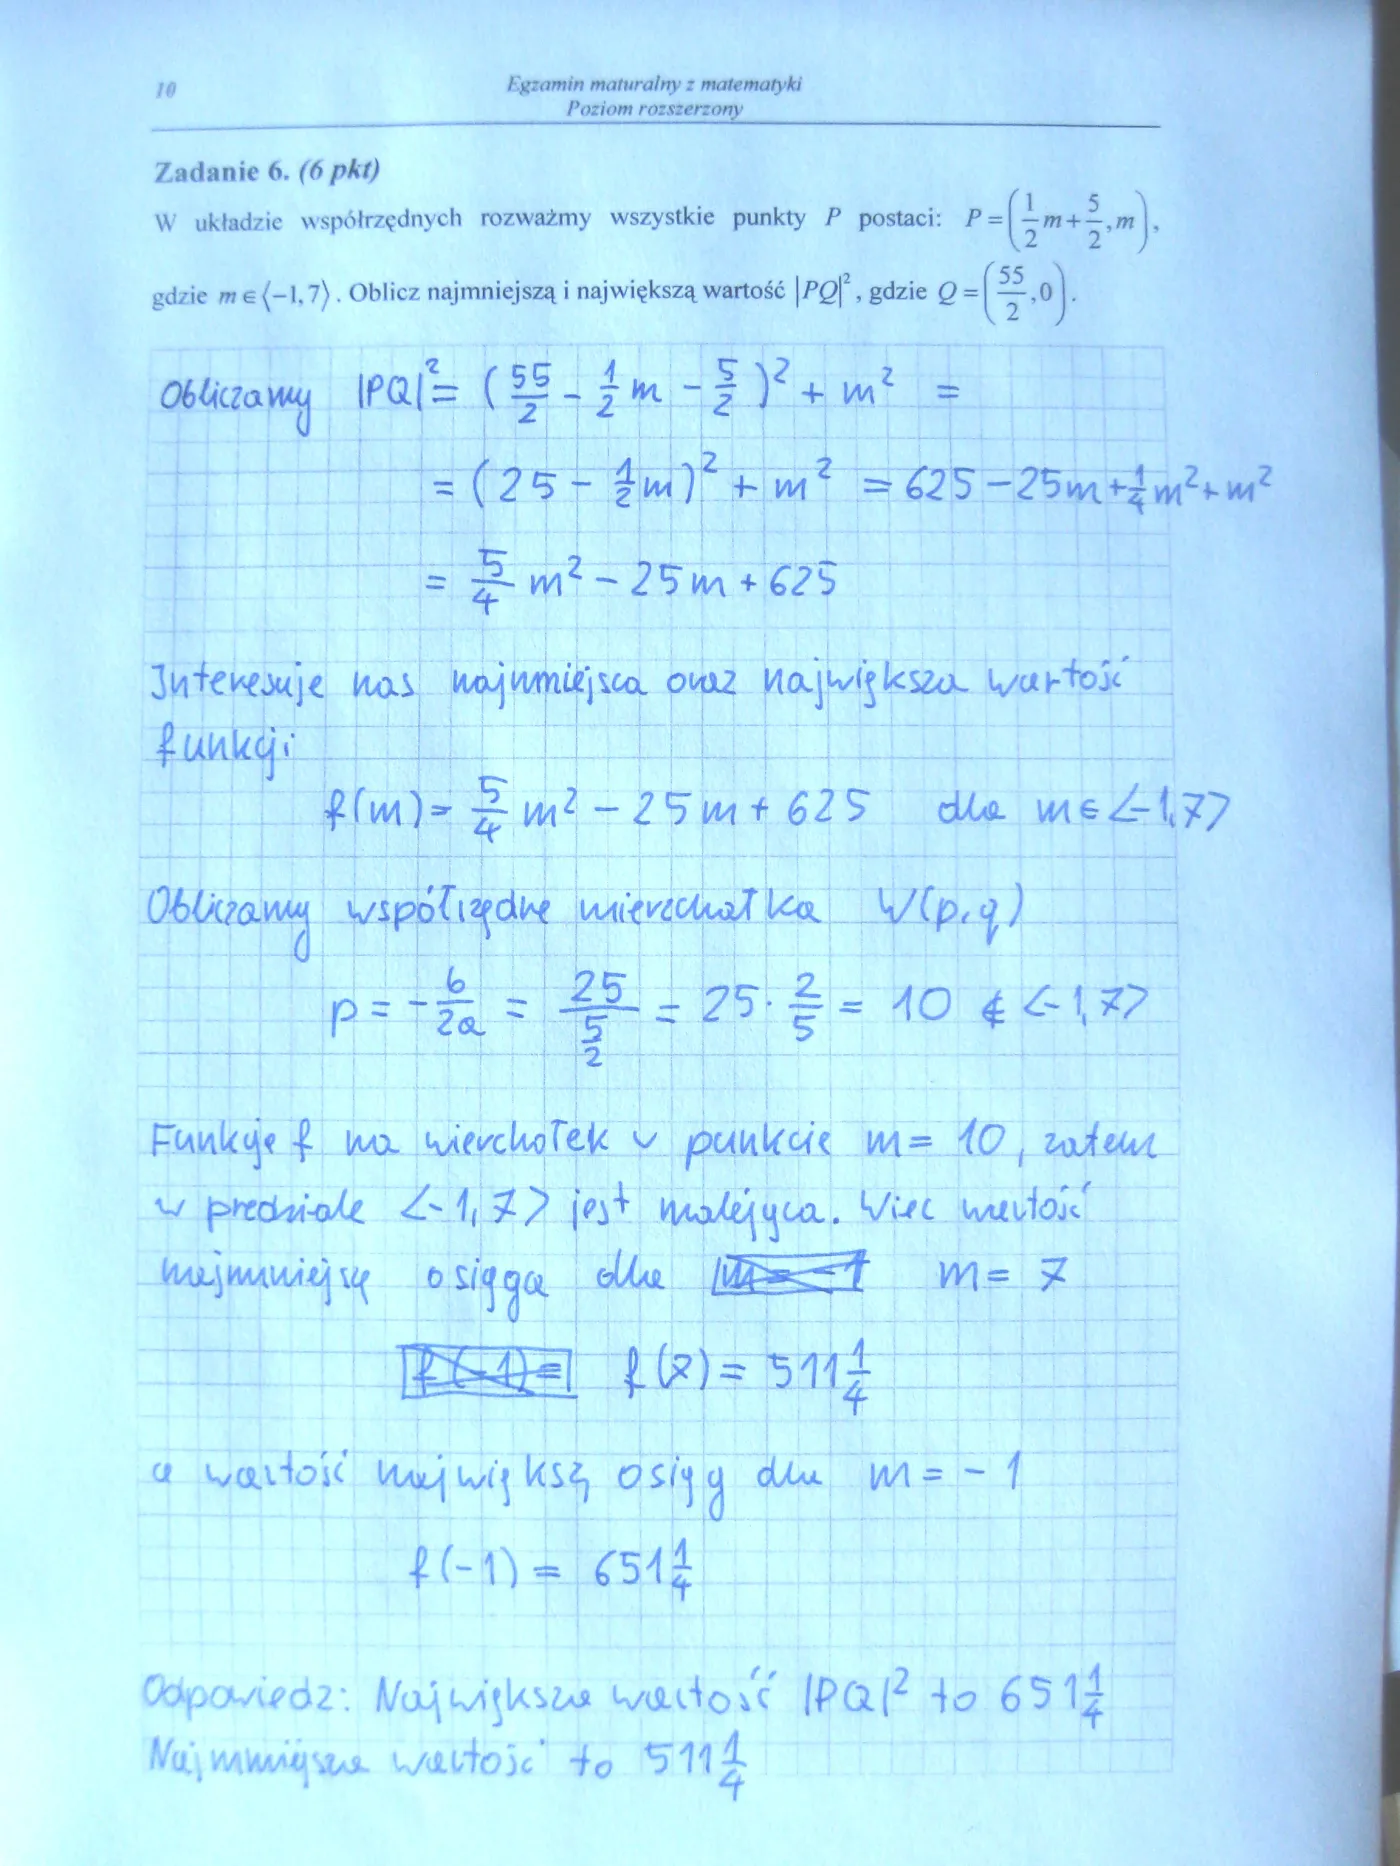 10
Egzamin maturalny z matematyki
Poziom rozszerzony
Zadanie 6. (6 pkt)
W układzie współrzędnych rozważmy wszystkie punkty P postaci: P = (1/2 m + 5/2, m),
gdzie m ∈ ⟨−1, 7⟩. Oblicz najmniejszą i największą wartość |PQ|², gdzie Q = (55/2, 0).
Obliczamy |PQ|² = (55/2 - 1/2 m - 5/2)² + m² =
= (25 - 1/2 m)² + m² = 625 - 25m + 1/4 m² + m²
= 5/4 m² - 25m + 625
Interesuje nas najmniejsza oraz największa wartość
funkcji
f(m) = 5/4 m² - 25m + 625 dla m ∈ <-1,7>
Obliczamy współrzędne wierzchołka W(p,q)
p = -b/2a = 25/(5/2) = 25 · 2/5 = 10 ∉ <-1,7>
Funkcje f ma wierchołek w punkcie m = 10, zatem
w predziale <-1,7> jest malejąca. Wiec wartość
najmniejszą osiąga dla m = -1 m = 7
f(-1) = f(7) = 511 1/4
a wartość największą osiąg dla m = -1
f(-1) = 651 1/4
Odpowiedz: Największa wartość |PQ|² to 651 1/4
Najmniejsza wartość to 511 1/4